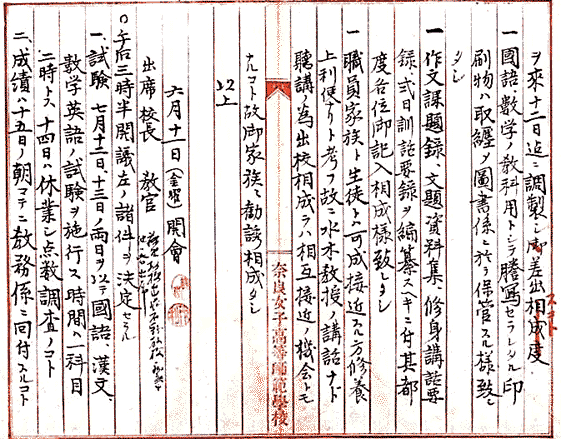 ヲ來十二日迄ニ調製シ御差出相成度コト
一國語、數学ノ教科用トシテ謄寫セラレタル印
刷物ハ取纒メ圖書係ニ於テ保管スル様致シ
タシ
一作文課題録、文題資料集、修身講話要
録、式日訓話要録ヲ編纂スベキニ付其都
度各位御記入相成様致シタシ
一職員家族ト生徒トハ可成接近スル方修養
上利便アリト考フ故ニ水木教授ノ講話ナド
聽講ノ為出校相成ラバ相互接近ノ機会トモ
ナルコト故御家族ヘ勸誘相成タシ
以上
奈良女子高等師範學校
六月十一日(金曜)開會
出席 校長 教官
〇午后三時半開議左ノ諸件ヲ決定セラル
一、試験 七月十二日、十三日ノ両日ヲ以テ國語、漢文、
数学英語ノ試験ヲ施行ス時間ハ一科目
二時トス 十四日ハ休業シ点数調査ノコト
二、成績ハ十五日ノ朝マデニ教務係ニ回付スルコト